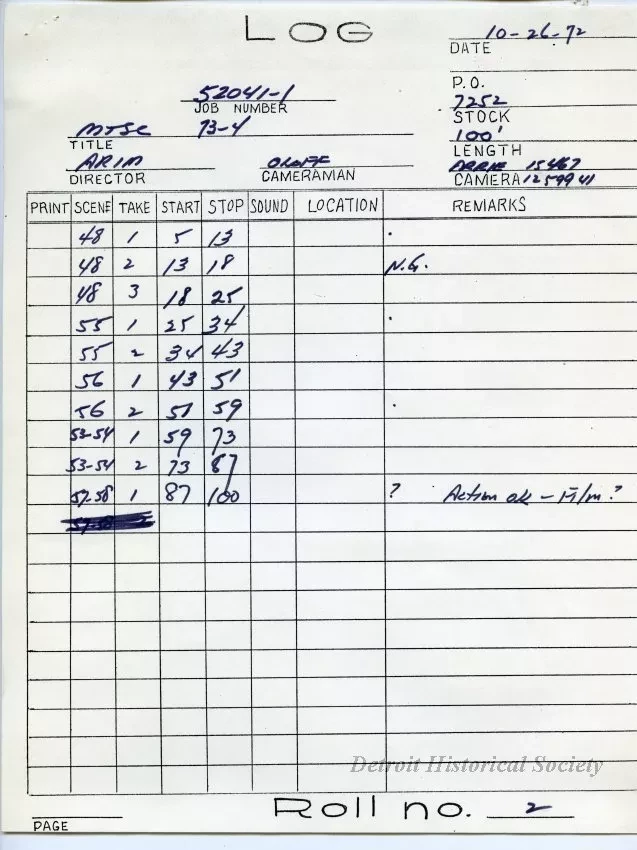 LOG
10-26-72
DATE
P.O.
52041-1
JOB NUMBER
7252
STOCK
MTSC 73-4
TITLE
100'
LENGTH
ARIM
DIRECTOR
OLOFF
CAMERAMAN
ARRIE 15467
CAMERA 1259941
PRINT SCENE TAKE START STOP SOUND LOCATION REMARKS
48 1 5 13 .
48 2 13 18 N.G.
48 3 18 25
55 1 25 34 .
55 2 34 43
56 1 43 51
56 2 51 59 .
53-54 1 59 73
53-54 2 73 87
57-58 1 87 100 ? Action ok -
Detroit Historical Society
Roll no. 2
PAGE